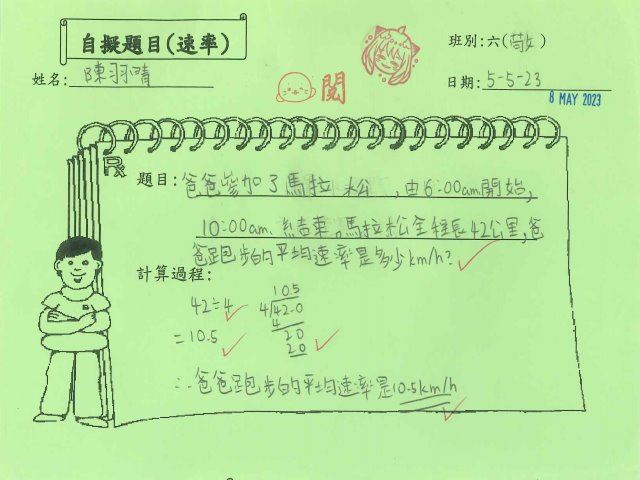 自擬題目(速率)
班別:六(敬)
姓名:陳羽晴
日期:5-5-23
閱
8 MAY 2023
題目:爸爸參加了馬拉松,由6:00am開始,
10:00am 結束。馬拉松全程長42公里,爸
爸跑步的平均速率是多少km/h?
計算過程:
10.5
42÷4
4 42.0
4
=10.5
20
20
∴爸爸跑步的平均速率是10.5km/h